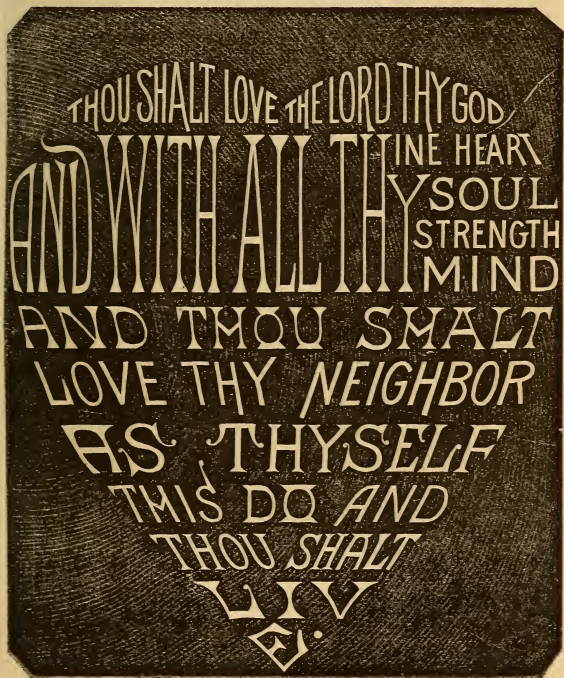 THOU SHALT LOVE THE LORD THY GOD
AND WITH ALL THINE HEART
THY SOUL
STRENGTH
MIND
AND THOU SHALT
LOVE THY NEIGHBOR
AS THYSELF
THIS DO AND
THOU SHALT
LIV
E.